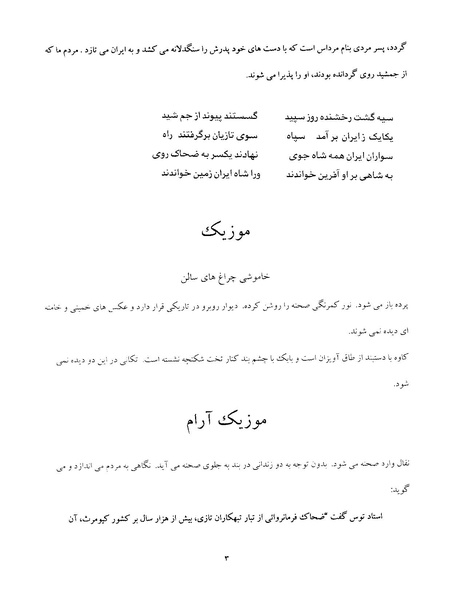 گردد، پسر مردی بنام مرداس است که با دست های خود پدرش را سنگدلانه می کشد و به ایران می تازد . مردم ما که
از جمشید روی گردانده بودند، او را پذیرا می شوند.
سیه گشت رخشنده روز سپید گسستند پیوند از جم شید
یکایک ز ایران بر آمد سپاه سوی تازیان برگرفتند راه
سواران ایران همه شاه جوی نهادند یکسر به ضحاک روی
به شاهی بر او آفرین خواندند ورا شاه ایران زمین خواندند
موزیک
خاموشی چراغ های سالن
پرده باز می شود. نور کمرنگی صحنه را روشن کرده. دیوار روبرو در تاریکی قرار دارد و عکس های خمینی و خامنه
ای دیده نمی شوند.
کاوه با دستبند از طاق آویزان است و بابک با چشم بند کنار تخت شکنجه نشسته است. تکانی در این دو دیده نمی
شود.
موزیک آرام
نقال وارد صحنه می شود. بدون توجه به دو زندانی در بند به جلوی صحنه می آید. نگاهی به مردم می اندازد و می
گوید:
استاد توس گفت "ضحاک فرمانروائی از تبار تبهکاران تازی، بیش از هزار سال بر کشور کیومرث، آن
۳